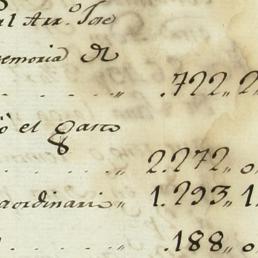 al Arz.º Jose
emoria de
.722,, 2
ò el gasto
2.272,, 0
aordinario,, 1.293,, 1
.188,, 0